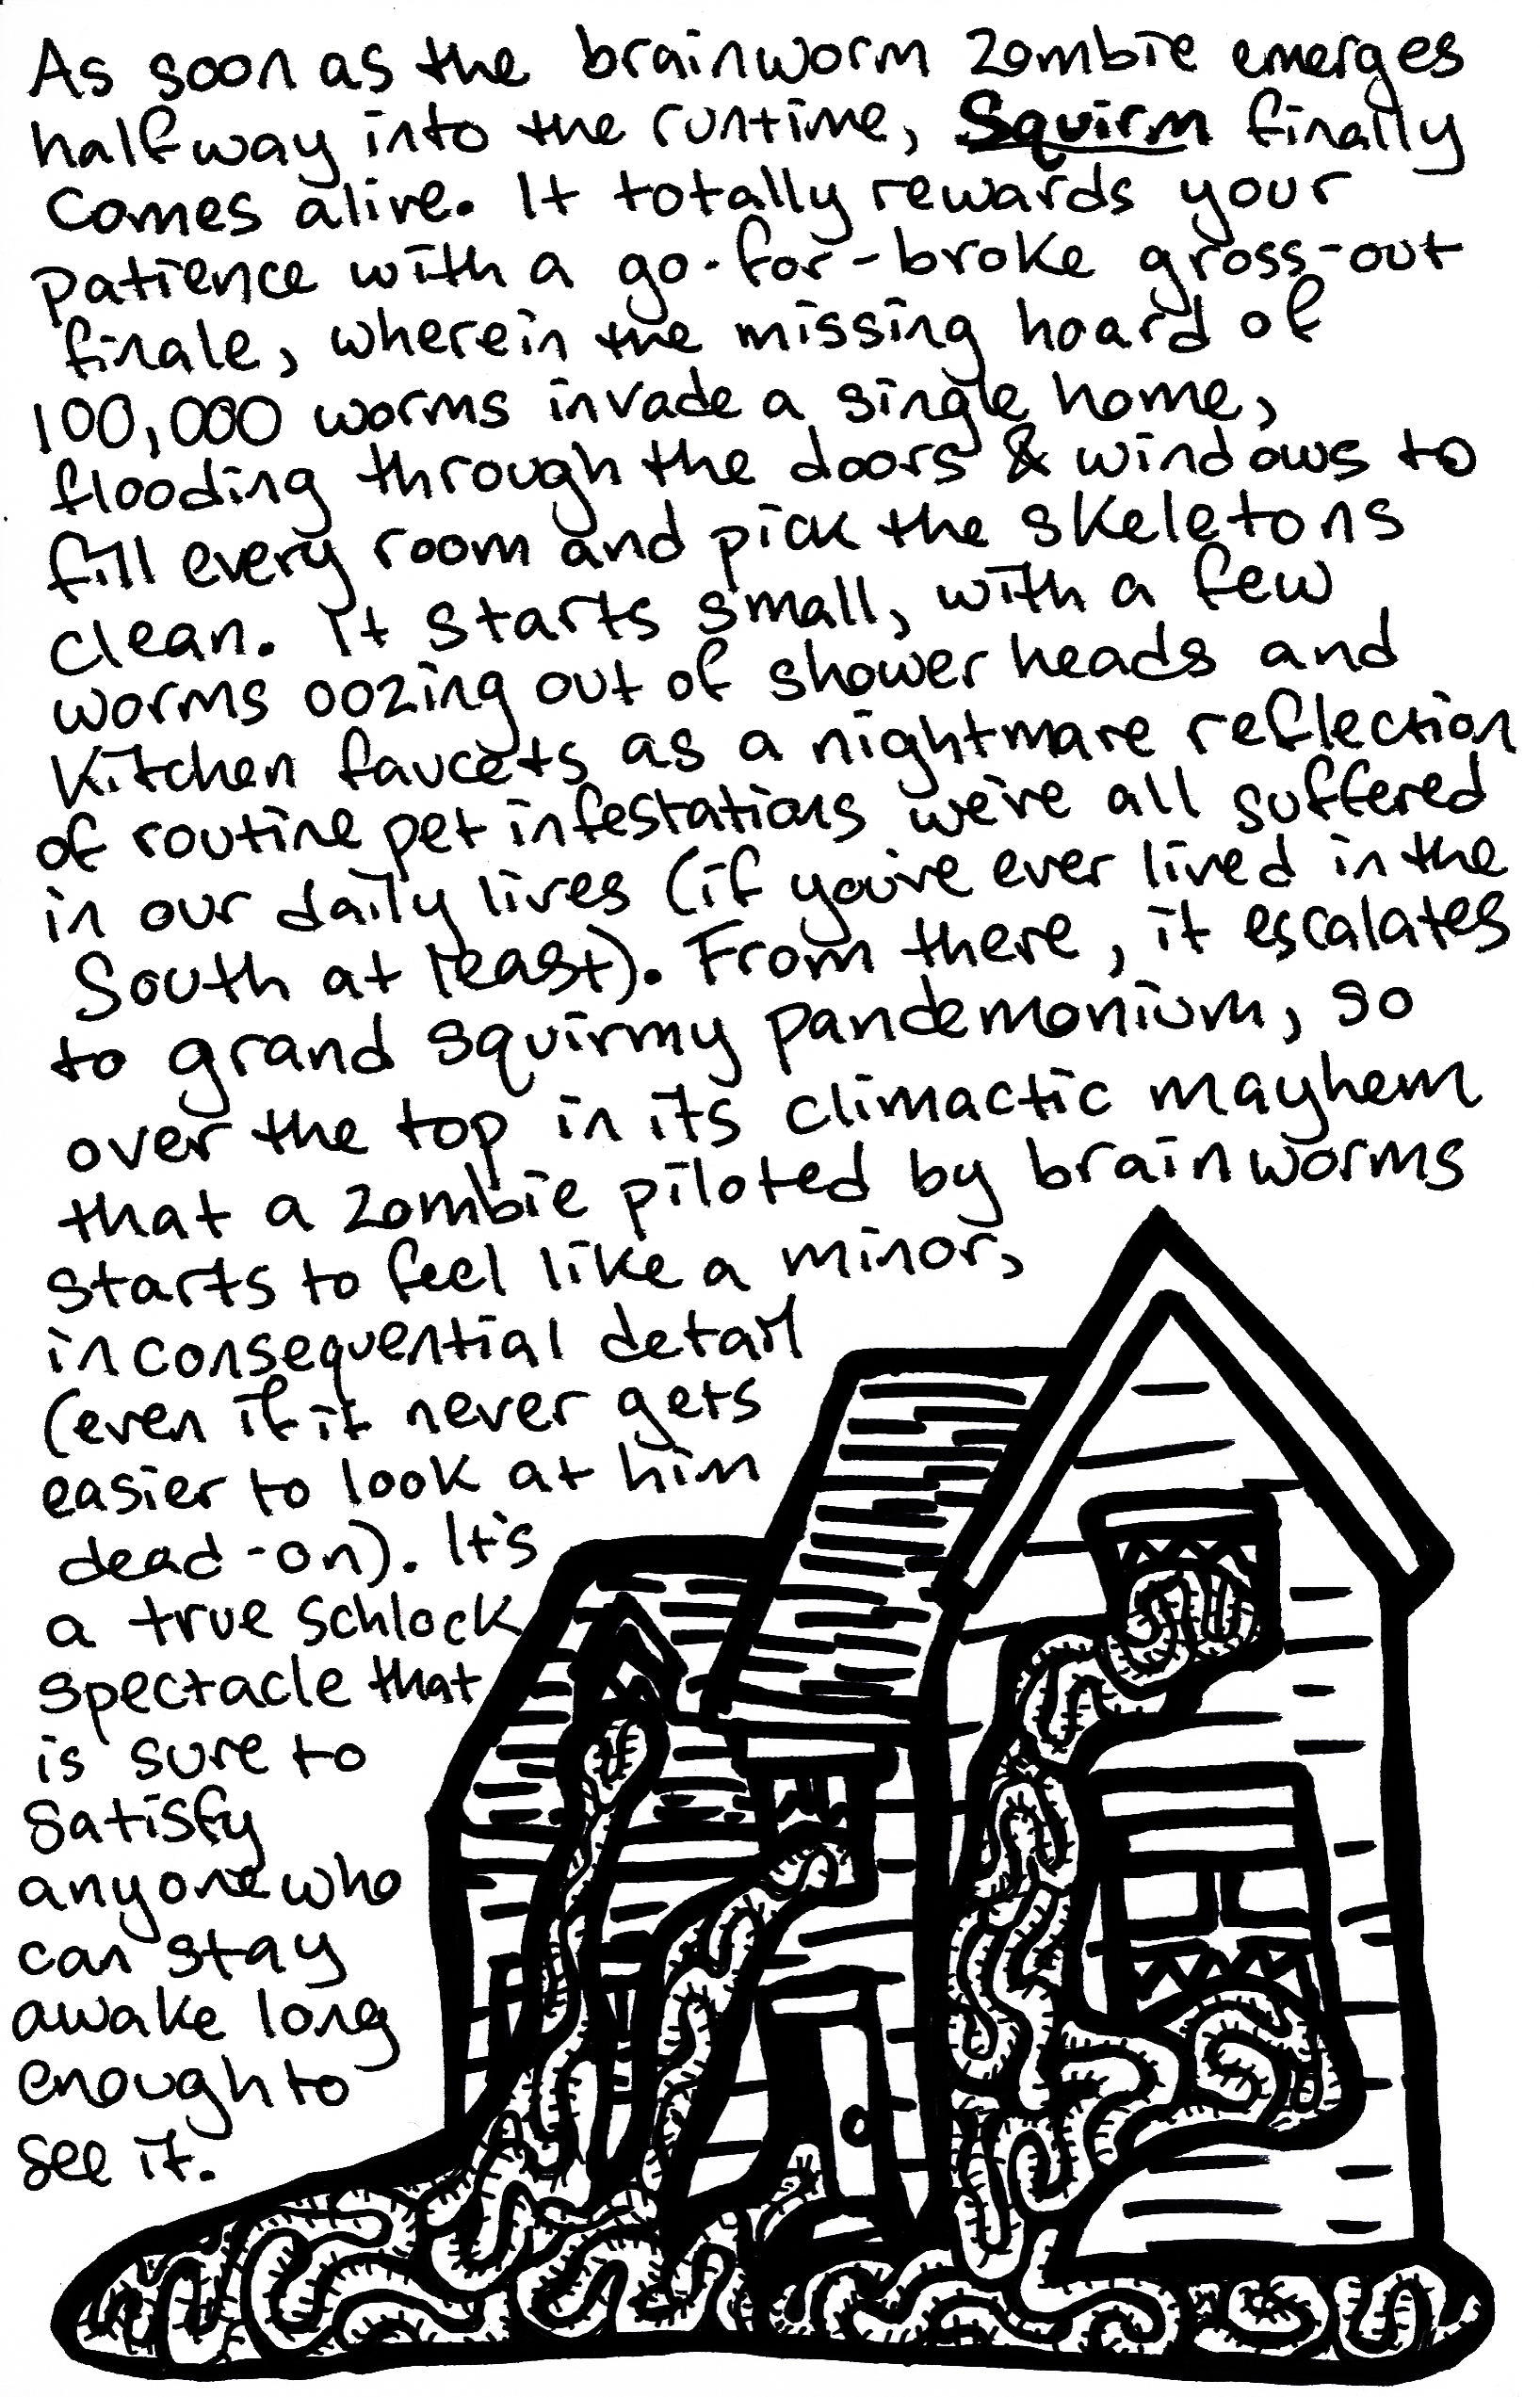 As soon as the brainworm zombie emerges
halfway into the runtime, Squirm finally
comes alive. It totally rewards your
patience with a go-for-broke gross-out
finale, wherein the missing hoard of
100,000 worms invade a single home,
flooding through the doors & windows to
fill every room and pick the skeletons
clean. It starts small, with a few
worms oozing out of shower heads and
kitchen faucets as a nightmare reflection
of routine pet infestations we've all suffered
in our daily lives (if you've ever lived in the
South at least). From there, it escalates
to grand squirmy pandemonium, so
over the top in its climactic mayhem
that a zombie piloted by brainworms
starts to feel like a minor,
inconsequential detail
(even if it never gets
easier to look at him
dead-on). It's
a true schlock
spectacle that
is sure to
satisfy
anyone who
can stay
awake long
enough to
see it.